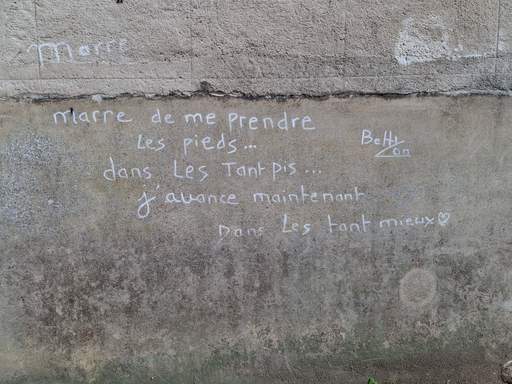 Marre
marre de me prendre
Les pieds...
dans Les Tant pis...
j'avance maintenant
Dans Les tant mieux♡